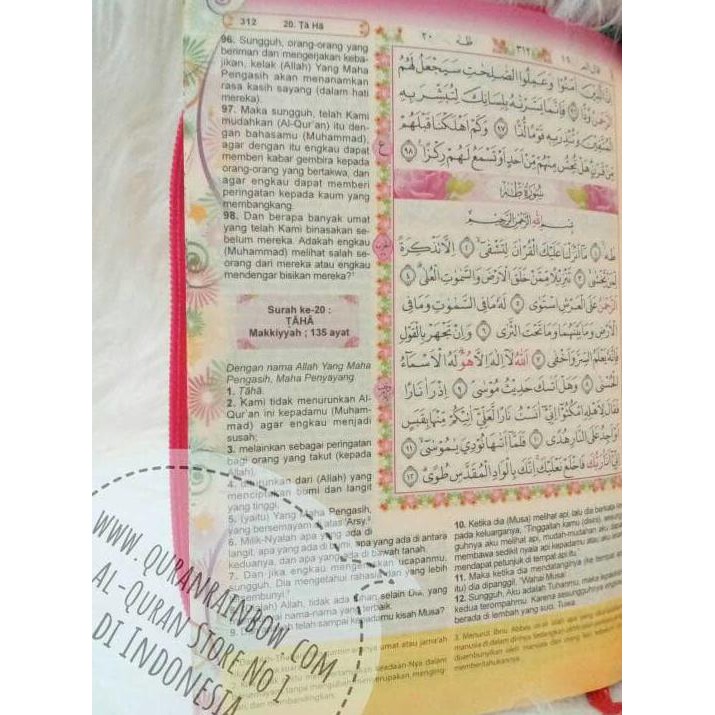 312 20. Ṭā Hā
96. Sungguh, orang-orang yang
beriman dan mengerjakan keba-
jikan, kelak (Allah) Yang Maha
Pengasih akan menanamkan
rasa kasih sayang (dalam hati
mereka).
97. Maka sungguh, telah Kami
mudahkan (Al-Qur'an) itu den-
gan bahasamu (Muhammad),
agar dengan itu engkau dapat
memberi kabar gembira kepada
orang-orang yang bertakwa, dan
agar engkau dapat memberi
peringatan kepada kaum yang
membangkang.
98. Dan berapa banyak umat
yang telah Kami binasakan se-
belum mereka. Adakah engkau
(Muhammad) melihat salah se-
orang dari mereka atau engkau
mendengar bisikan mereka?
Surah ke-20 :
ṬĀHĀ
Makkiyyah ; 135 ayat
Dengan nama Allah Yang Maha
Pengasih, Maha Penyayang
1. Ṭāhā.
2. Kami tidak menurunkan Al-
Qur'an ini kepadamu (Muham-
mad) agar engkau menjadi
susah;
3. melainkan sebagai peringatan
bagi orang yang takut (kepada
Allah),
4. diturunkan dari (Allah) yang
menciptakan bumi dan langit
yang tinggi,
5. (yaitu) Yang Maha Pengasih,
yang bersemayam di atas 'Arsy.
6. Milik-Nyalah apa yang ada di
langit, apa yang ada di bumi, apa yang ada di antara
keduanya, dan apa yang ada di bawah tanah.
7. Dan jika engkau mengeraskan ucapanmu,
sungguh, Dia mengetahui rahasia dan yang lebih
tersembunyi.
8. (Dialah) Allah, tidak ada tuhan selain Dia, yang
mempunyai nama-nama yang terbaik.
9. telah sampai kepadamu kisah Musa?
طه ٢٠ ٣١٢ قال الم ١٦
إِنَّ الَّذِينَ آمَنُوا وَعَمِلُوا الصّٰلِحٰتِ سَيَجْعَلُ لَهُمُ
الرَّحْمٰنُ وُدًّا ٩٦ فَإِنَّمَا يَسَّرْنٰهُ بِلِسَانِكَ لِتُبَشِّرَ بِهِ
الْمُتَّقِينَ وَتُنْذِرَ بِهِ قَوْمًا لُّدًّا ٩٧ وَكَمْ أَهْلَكْنَا قَبْلَهُمْ
مِّنْ قَرْنٍ هَلْ تُحِسُّ مِنْهُمْ مِّنْ أَحَدٍ أَوْ تَسْمَعُ لَهُمْ رِكْزًا ٩٨
سُورَةُ طٰهٰ
بِسْمِ اللهِ الرَّحْمٰنِ الرَّحِيمِ
طٰهٰ ١ مَا أَنْزَلْنَا عَلَيْكَ الْقُرْاٰنَ لِتَشْقٰى ٢ إِلَّا تَذْكِرَةً
لِّمَنْ يَخْشٰى ٣ تَنْزِيلًا مِّمَّنْ خَلَقَ الْأَرْضَ وَالسَّمٰوٰتِ الْعُلٰى ٤
الرَّحْمٰنُ عَلَى الْعَرْشِ اسْتَوٰى ٥ لَهُ مَا فِي السَّمٰوٰتِ وَمَا فِي
الْأَرْضِ وَمَا بَيْنَهُمَا وَمَا تَحْتَ الثَّرٰى ٦ وَإِنْ تَجْهَرْ بِالْقَوْلِ
فَإِنَّهُ يَعْلَمُ السِّرَّ وَأَخْفٰى ٧ اللهُ لَا إِلٰهَ إِلَّا هُوَ لَهُ الْأَسْمَاءُ
الْحُسْنٰى ٨ وَهَلْ أَتٰىكَ حَدِيثُ مُوسٰى ٩ إِذْ رَاٰ نَارًا
فَقَالَ لِأَهْلِهِ امْكُثُوا إِنِّي اٰنَسْتُ نَارًا لَّعَلِّي اٰتِيكُمْ مِّنْهَا بِقَبَسٍ
أَوْ أَجِدُ عَلَى النَّارِ هُدًى ١٠ فَلَمَّا أَتٰىهَا نُودِيَ يٰمُوسٰى ١١
إِنِّي أَنَا رَبُّكَ فَاخْلَعْ نَعْلَيْكَ إِنَّكَ بِالْوَادِ الْمُقَدَّسِ طُوًى ١٢
10. Ketika dia (Musa) melihat api, lalu dia berkata
pada keluarganya, "Tinggallah kamu (disini), sesung-
guhnya aku melihat api, mudah-mudahan aku dapat
membawa sedikit nyala api kepadamu atau aku akan
mendapat petunjuk di tempat api itu."
11. Maka ketika dia mendatanginya (ke tempat api
itu) dia dipanggil, "Wahai Musa!
12. Sungguh, Aku adalah Tuhanmu, maka lepaskan
kedua terompahmu. Karena sesungguhnya engkau
berada di lembah yang suci, Tuwa.
WWW.QURANRAINBOW.COM
AL-QURAN STORE NO 1
DI INDONESIA